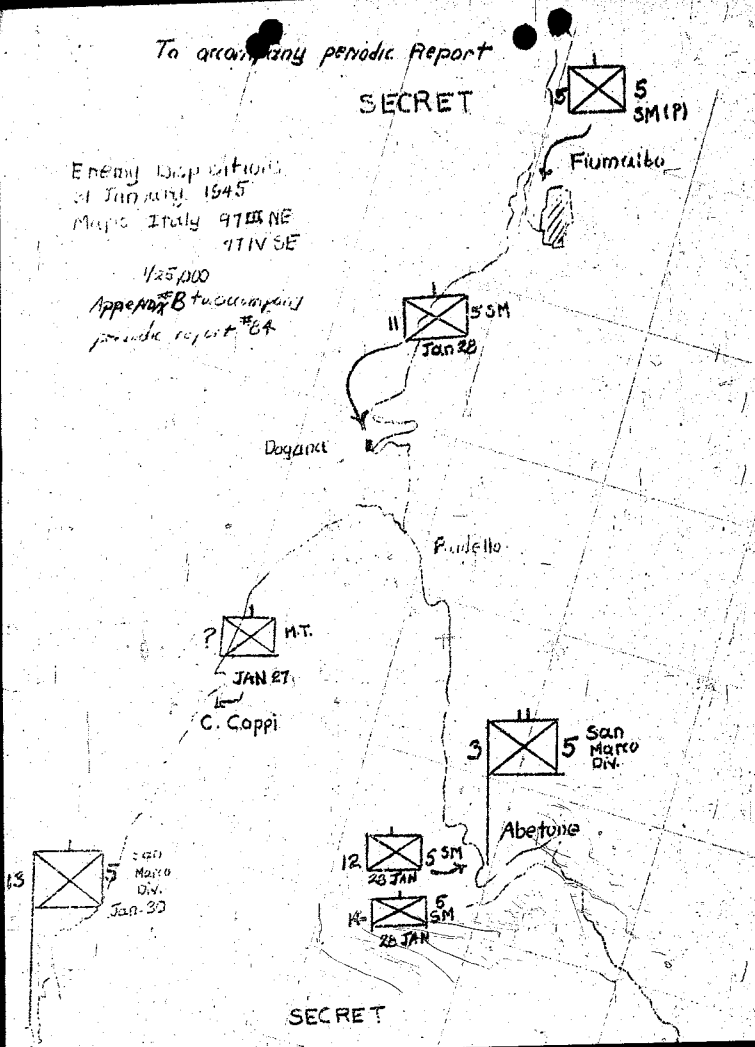 To accompany periodic Report
SECRET
5 5
SM (P)
Fiumalbo
Enemy Dispositions
31 January 1945
Maps Italy 97 III NE
97 IV SE
1/25,000
Appendix #B to accompany
periodic report #84
I
11 5 SM
Jan 28
Dogana
I
? M.T.
JAN 27
C. Coppi
II
3 5 San
Marco
Div.
Abetone
I
12 5 SM
I
14 5
SM
28 JAN
I
13 5 San
Marco
Div.
Jan-30
SECRET